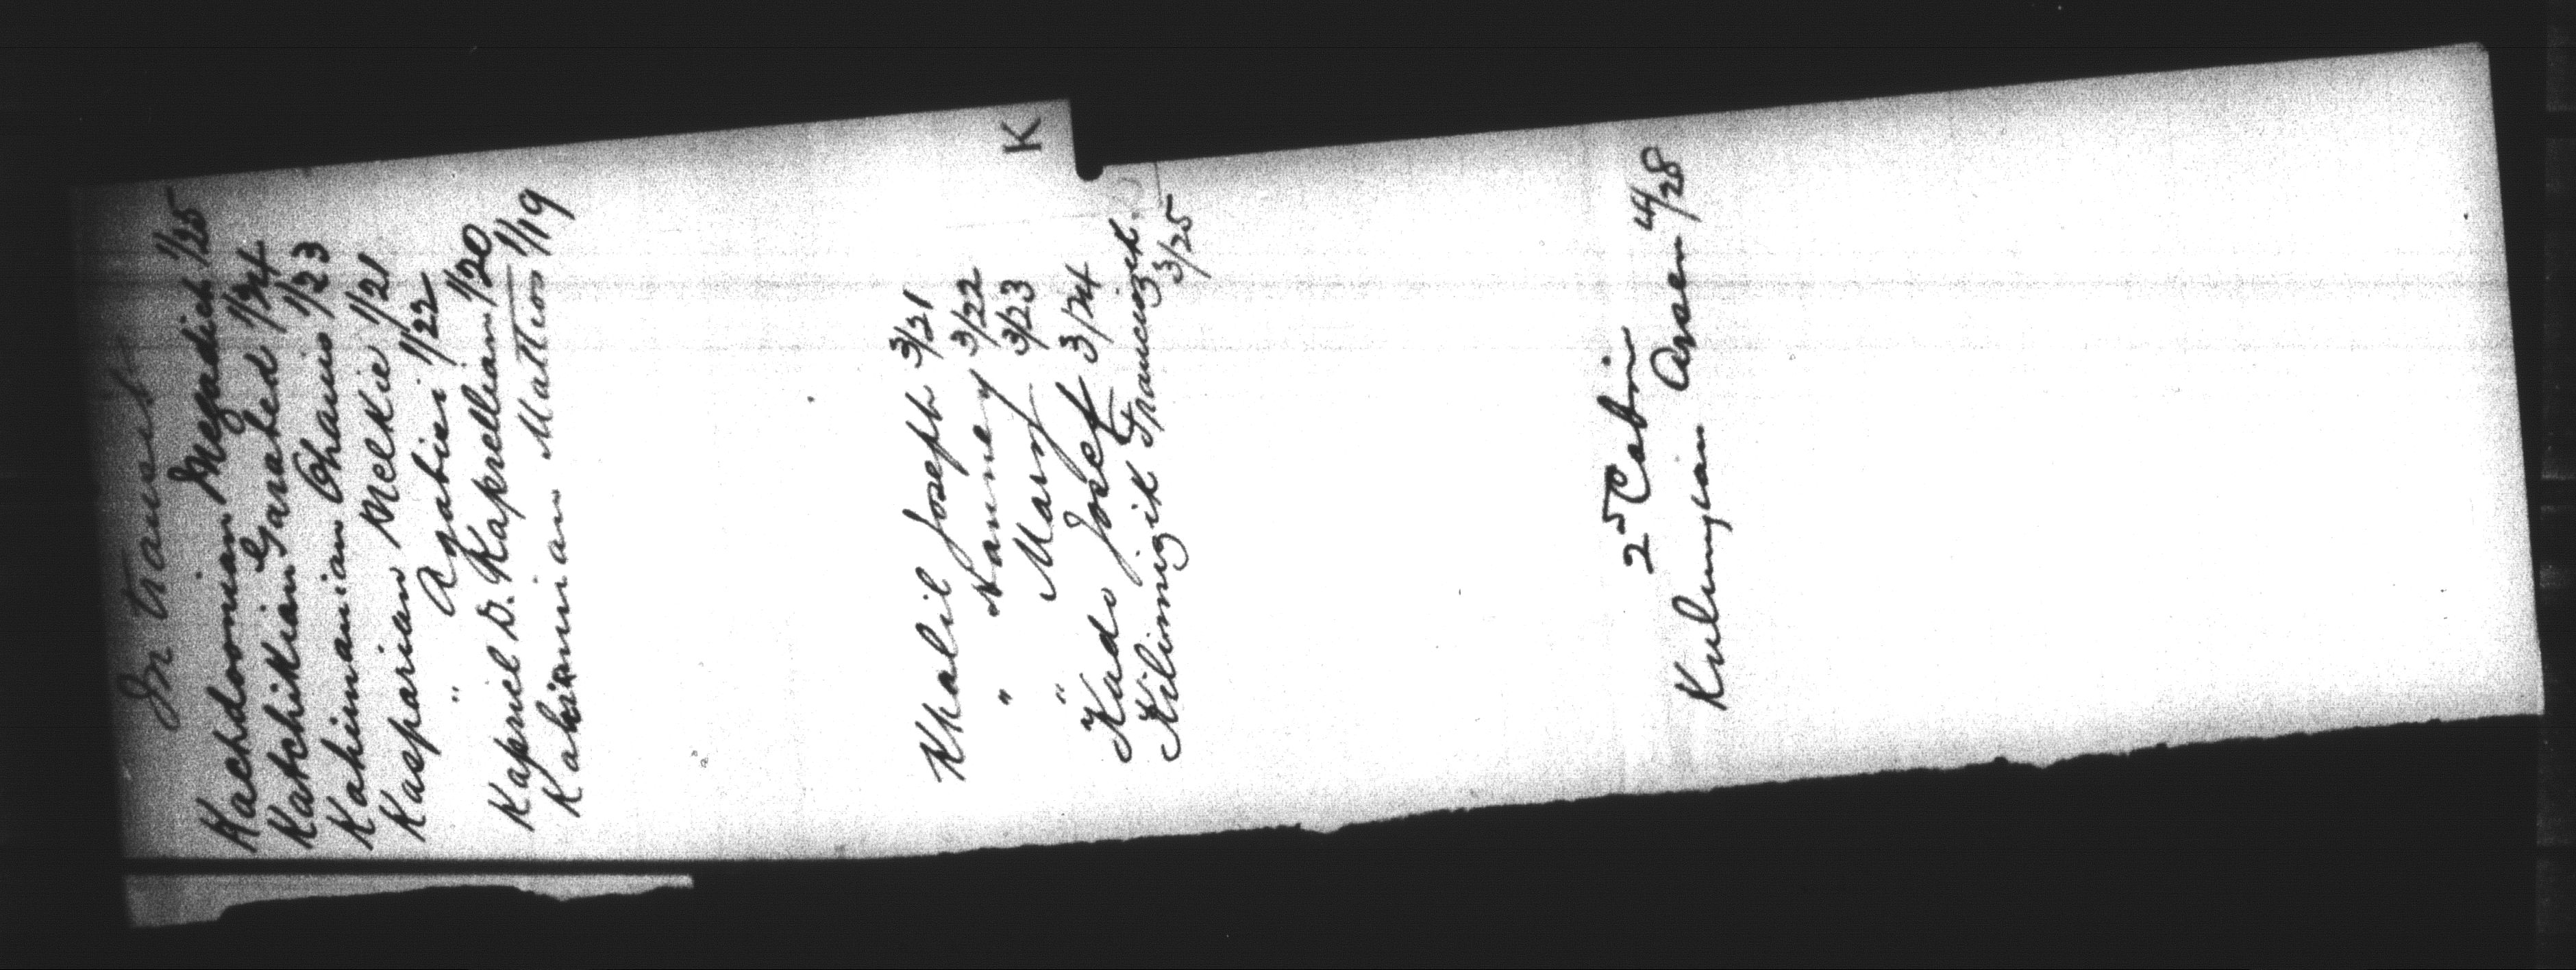 In transit
Kachdoonian Megadich 1/25
Katchikian Garabed 1/24
Kahimanian Ohanis 1/23
Kasparian Melkie 1/21
" Azabier 1/22
Kapriel D. Kaprellian 1/20
Mattios 1/19
K
Khalil Joseph 3/21
" Nanney 3/22
" Mary 3/23
Kudo Josef 3/24
Klimizik Franciszek
3/25
2 Cabin
Kulunjian Arsen 4/28